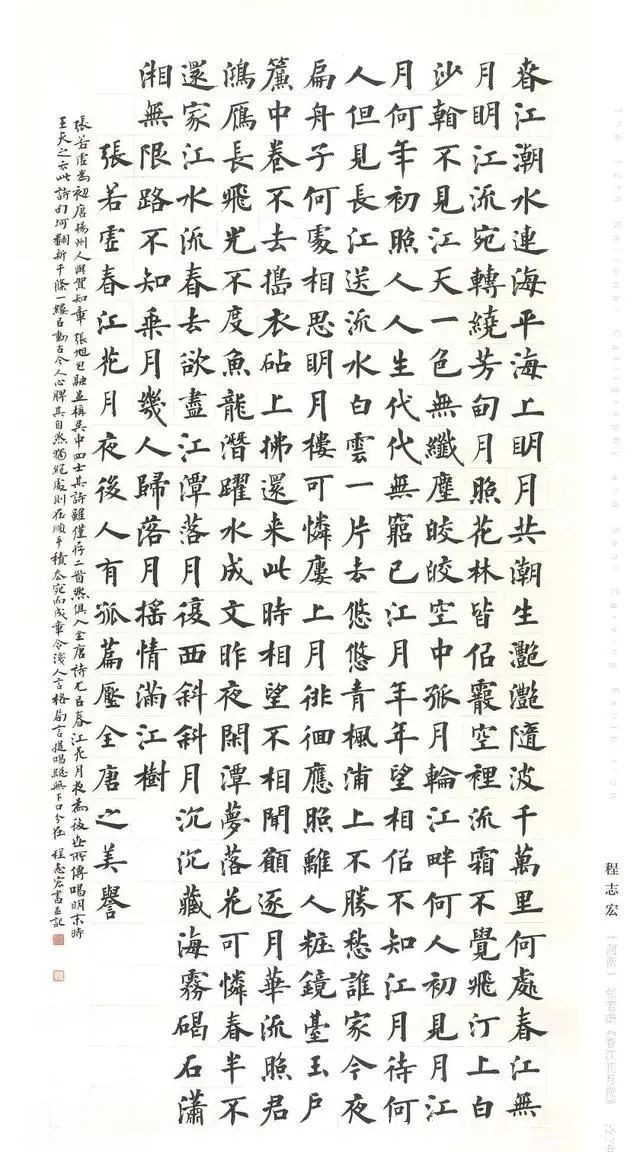 春江潮水連海平海上明月共潮生灧灧隨波千萬里何處春江無
月明江流宛轉繞芳甸月照花林皆佀霰空裡流霜不覺飛汀上白
沙翰不見江天一色無纖塵皎皎空中孤月輪江畔何人初見月江
月何年初照人人生代代無窮已江月年年望相佀不知江月待何
人但見長江送流水白雲一片去悠悠青楓浦上不勝愁誰家今夜
扁舟子何處相思明月樓可憐樓上月徘徊應照離人粧鏡臺玉戶
簾中卷不去搗衣砧上拂還来此時相望不相聞願逐月華流照君
鴻雁長飛光不度魚龍潛躍水成文昨夜閑潭夢落花可憐春半不
還家江水流春去欲盡江潭落月復西斜斜月沉沉藏海霧碣石瀟
湘無限路不知乘月幾人歸落月搖情滿江樹
張若虛春江花月夜後人有孤篇壓全唐之美譽
張若虛為初唐揚州人與賀知章張旭包融並稱吳中四士其詩雖僅存二首然俱入全唐詩尤㠯春江花月夜為後世所傳唱明末時
王夫之云此詩句句翻新千條一縷㠯動古今人心脾其自然獨絕處則在順手積去宛而成章令淺人言格局言提唱總無下口分在 程志宏書並記
程志宏 （河南） 张若虚《春江花月夜》
National Calligraphy and Seal Carving Exhibition